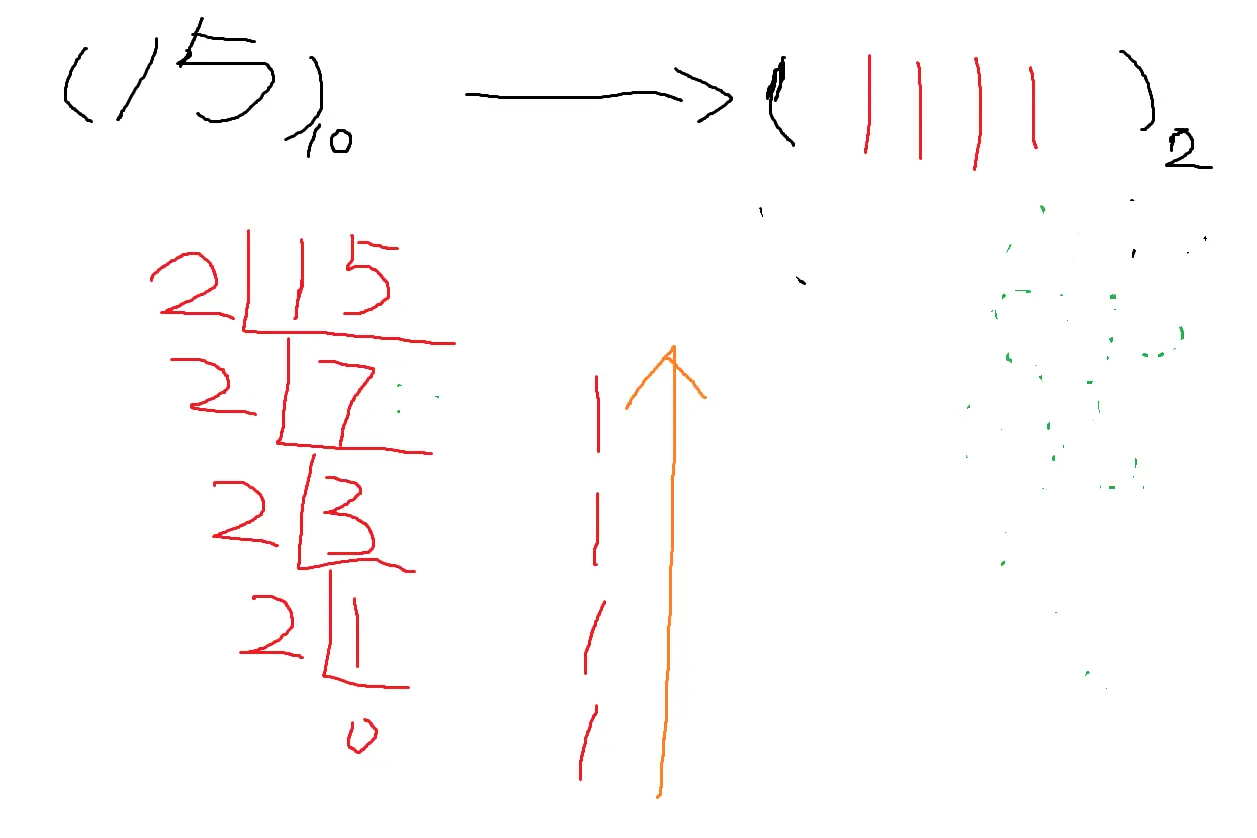 (15)10 → (1111)2
2 15
2 7 1
2 3 1
2 1 1
0 1